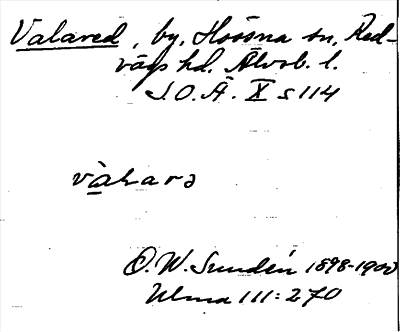 Valared, by, Hössna sn, Red-
vägs hd. Älvsb. l.
S.O.Ä. X s 114
vàlara
O. W. Sundén 1898-1900
Ulma 111:270